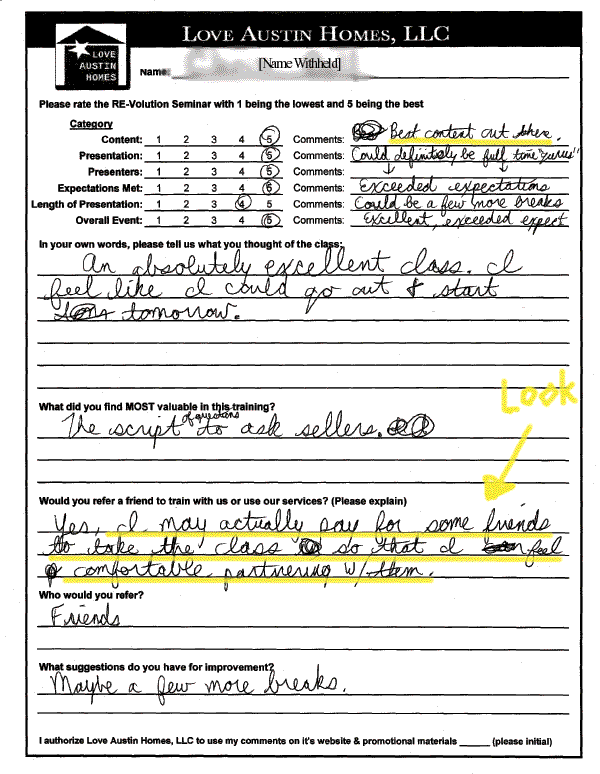 LOVE AUSTIN HOMES, LLC
LOVE
AUSTIN
HOMES
Name: [Name Withheld]
Please rate the RE-Volution Seminar with 1 being the lowest and 5 being the best
Category
Content: 1 2 3 4 5 Comments: Best content out there.
Presentation: 1 2 3 4 5 Comments: Could definitely be full time "gurus"
Presenters: 1 2 3 4 5 Comments: ↓ ↓
Expectations Met: 1 2 3 4 5 Comments: Exceeded expectations
Length of Presentation: 1 2 3 4 5 Comments: Could be a few more breaks
Overall Event: 1 2 3 4 5 Comments: Excellent, exceeded expect
In your own words, please tell us what you thought of the class:
An absolutely excellent class. I
feel like I could go out & start
tomorrow.
Look
What did you find MOST valuable in this training?
The script of questions to ask sellers.
Would you refer a friend to train with us or use our services? (Please explain)
Yes, I may actually pay for some friends
to take the class so that I feel
comfortable partnering w/ them.
Who would you refer?
Friends
What suggestions do you have for improvement?
Maybe a few more breaks.
I authorize Love Austin Homes, LLC to use my comments on it's website & promotional materials ______ (please initial)